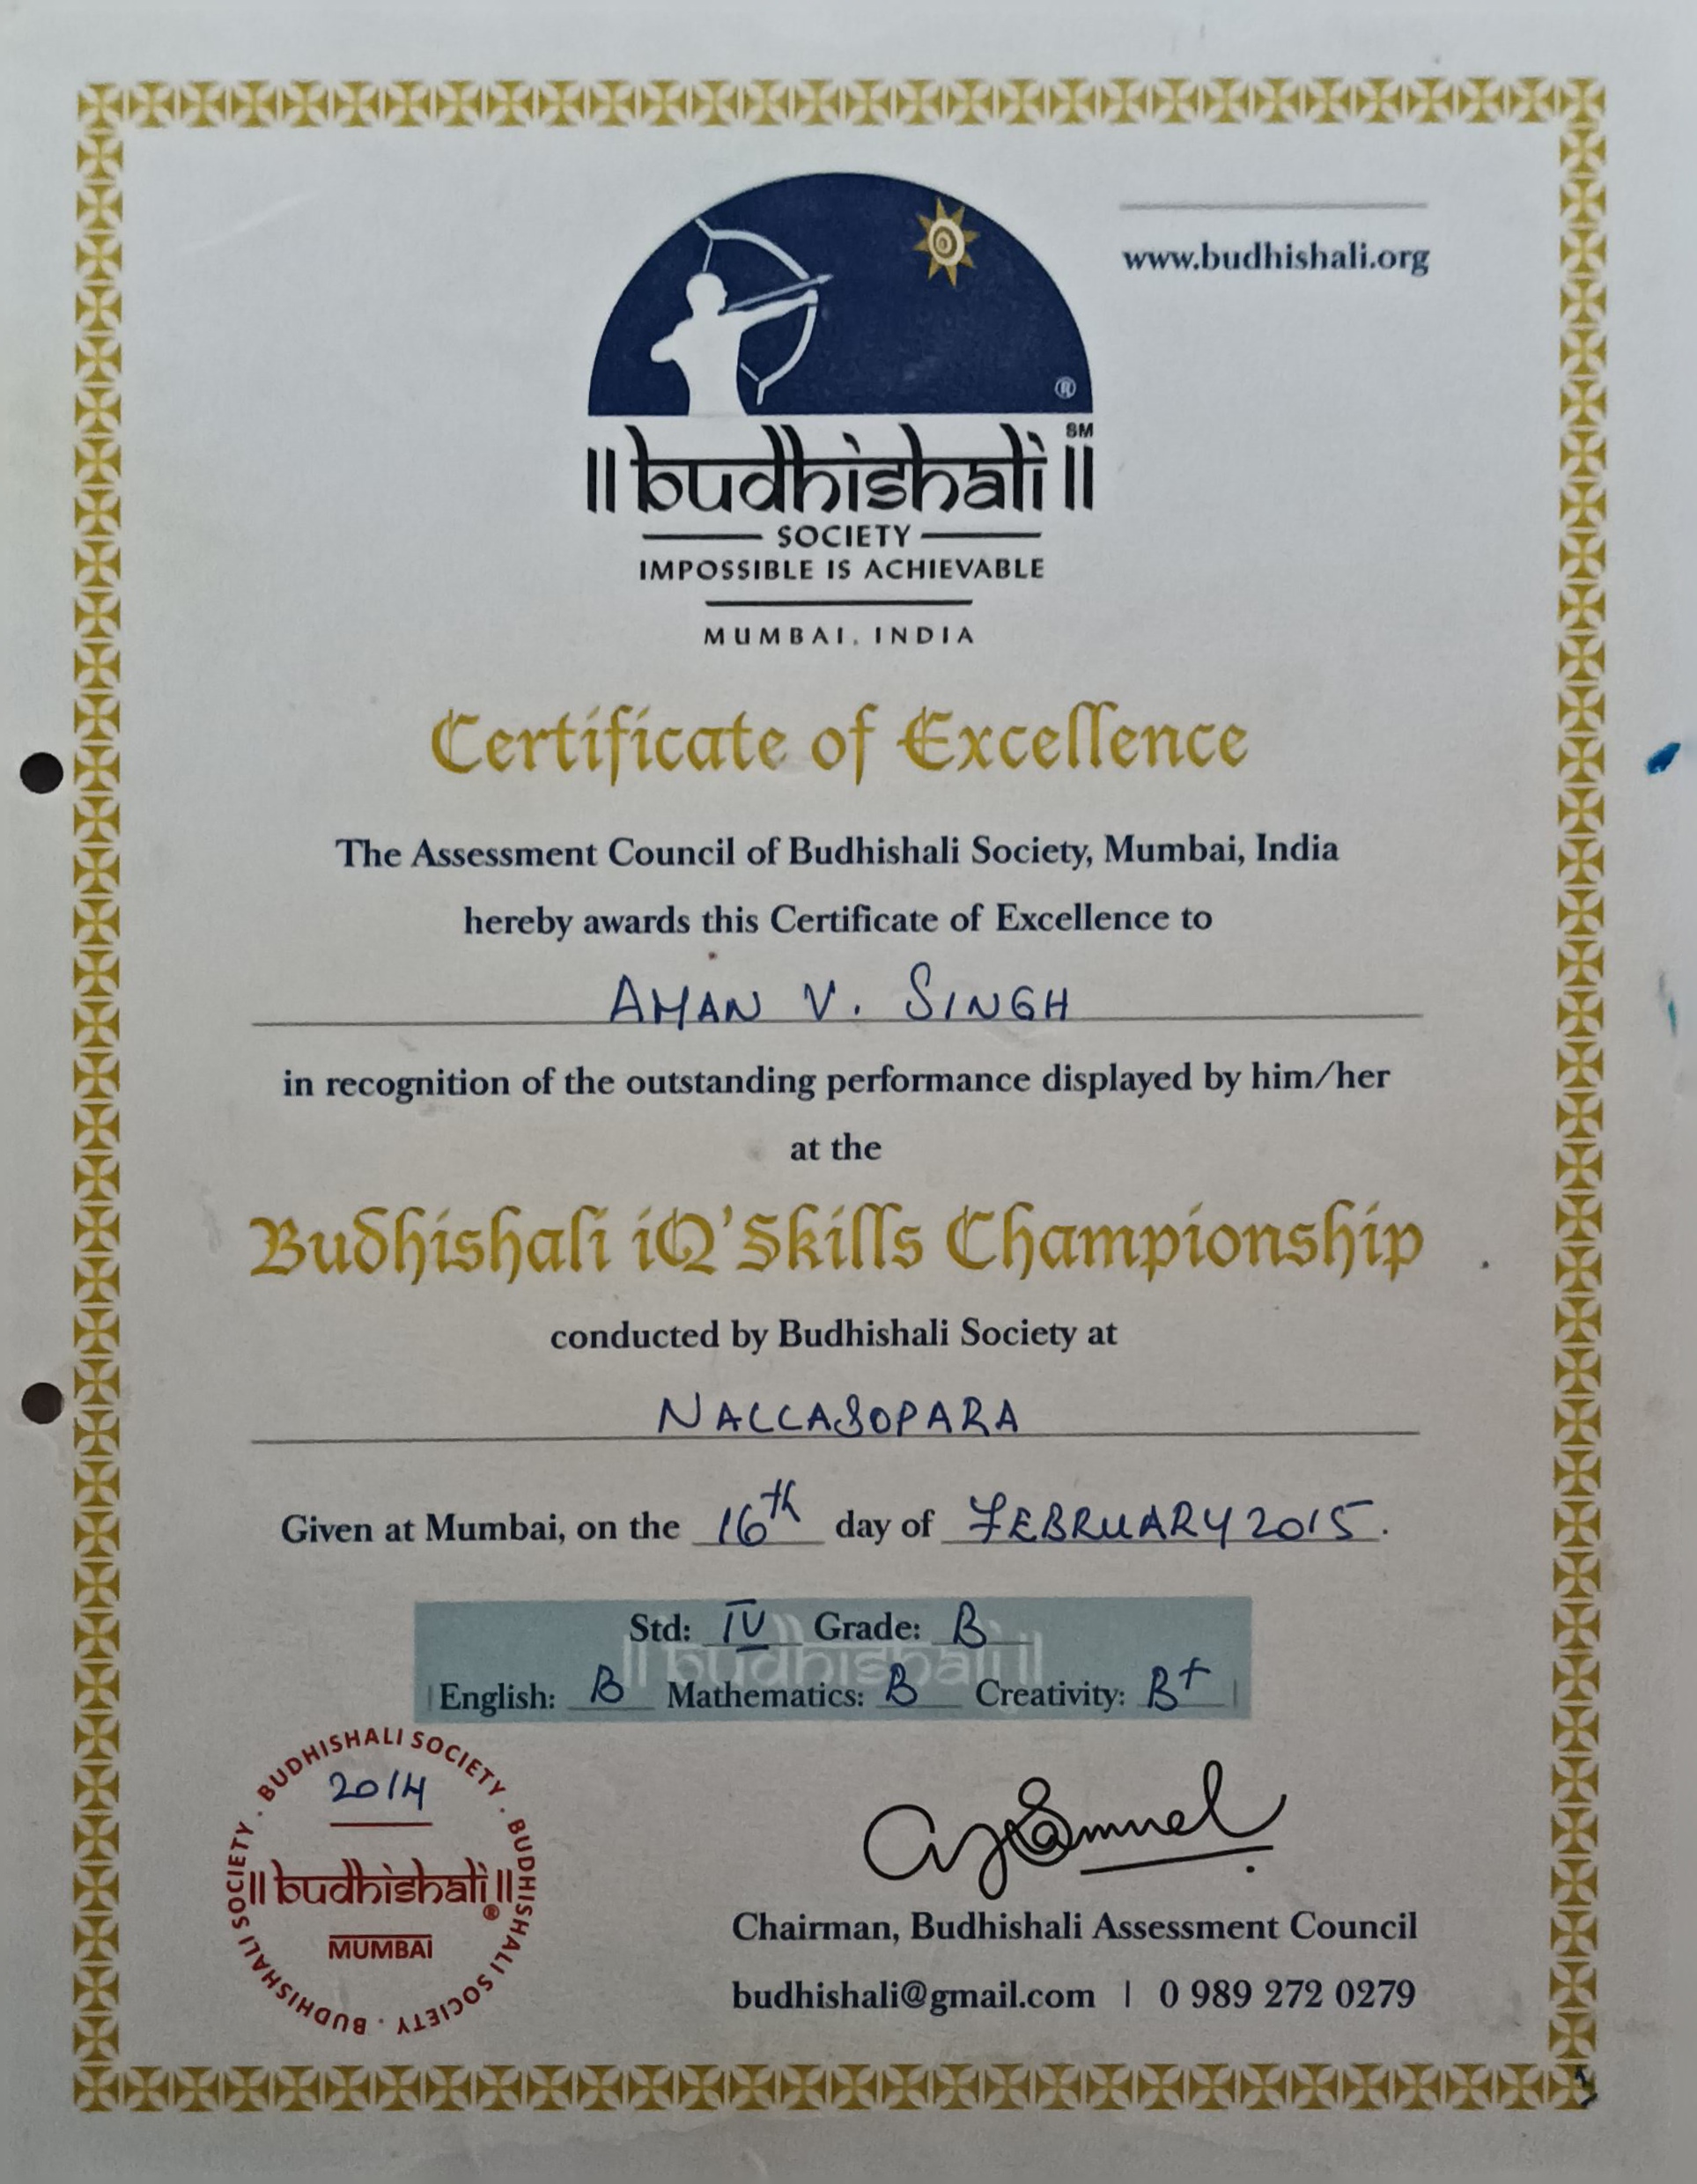 www.budhishali.org
®
|| budhishali || SM
SOCIETY
IMPOSSIBLE IS ACHIEVABLE
MUMBAI, INDIA
Certificate of Excellence
The Assessment Council of Budhishali Society, Mumbai, India
hereby awards this Certificate of Excellence to
AMAN V. SINGH
in recognition of the outstanding performance displayed by him/her
at the
Budhishali iQ'Skills Championship
conducted by Budhishali Society at
NALLASOPARA
Given at Mumbai, on the 16th day of FEBRUARY 2015.
|| budhishali ||
Std: IV Grade: B
English: B Mathematics: B Creativity: B+
BUDHISHALI SOCIETY · BUDHISHALI SOCIETY · BUDHISHALI SOCIETY ·
2014
|| budhishali || ®
MUMBAI
Chairman, Budhishali Assessment Council
budhishali@gmail.com | 0 989 272 0279